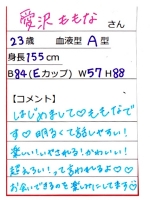 愛沢 ももな さん
23歳 血液型 A型
身長155cm
B84(Eカップ) W57 H88
【コメント】
はじめまして♡ももなで
す♡明るくて話しやすい!
楽しい!いやされる!かわいい!
超えろい!って言われるよ♡♡
お会いできるのを楽しみにしてます♡